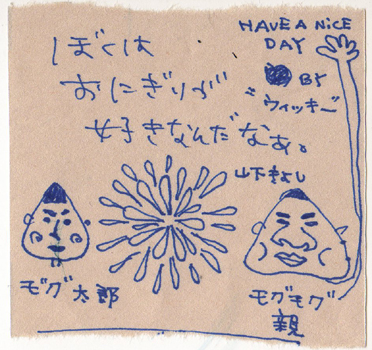 HAVE A NiCE
DAY
BY
"ウィッキー"
ぼくは
おにぎりが
好きなんだなぁ。
山下きよし
モグ太郎
モグモグ
親